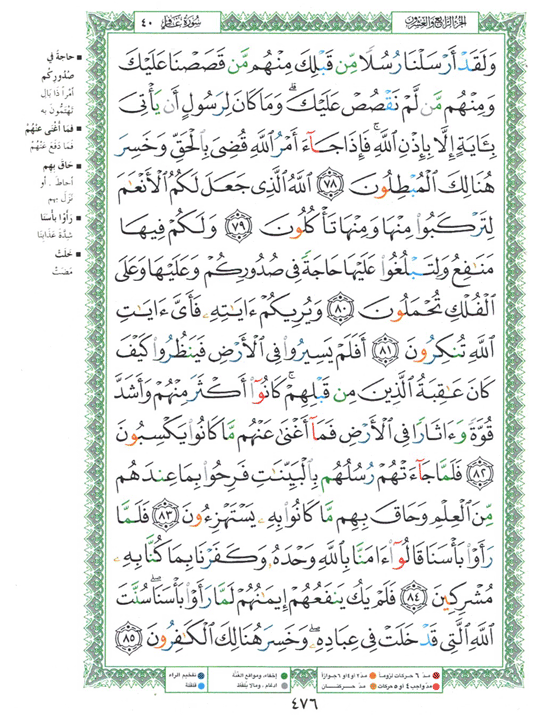 سُورَةُ غَافِر ٤٠
الجزء الرابع والعشرون
وَلَقَدْ أَرْسَلْنَا رُسُلًا مِّن قَبْلِكَ مِنْهُم مَّن قَصَصْنَا عَلَيْكَ
وَمِنْهُم مَّن لَّمْ نَقْصُصْ عَلَيْكَ ۗ وَمَا كَانَ لِرَسُولٍ أَن يَأْتِىَ
بِـَٔايَةٍ إِلَّا بِإِذْنِ ٱللَّهِ ۚ فَإِذَا جَآءَ أَمْرُ ٱللَّهِ قُضِىَ بِٱلْحَقِّ وَخَسِرَ
هُنَالِكَ ٱلْمُبْطِلُونَ ٧٨ ٱللَّهُ ٱلَّذِى جَعَلَ لَكُمُ ٱلْأَنْعَٰمَ
لِتَرْكَبُوا۟ مِنْهَا وَمِنْهَا تَأْكُلُونَ ٧٩ وَلَكُمْ فِيهَا
مَنَٰفِعُ وَلِتَبْلُغُوا۟ عَلَيْهَا حَاجَةً فِى صُدُورِكُمْ وَعَلَيْهَا وَعَلَى
ٱلْفُلْكِ تُحْمَلُونَ ٨٠ وَيُرِيكُمْ ءَايَٰتِهِۦ فَأَىَّ ءَايَٰتِ
ٱللَّهِ تُنكِرُونَ ٨١ أَفَلَمْ يَسِيرُوا۟ فِى ٱلْأَرْضِ فَيَنظُرُوا۟ كَيْفَ
كَانَ عَٰقِبَةُ ٱلَّذِينَ مِن قَبْلِهِمْ ۚ كَانُوٓا۟ أَكْثَرَ مِنْهُمْ وَأَشَدَّ
قُوَّةً وَءَاثَارًا فِى ٱلْأَرْضِ فَمَآ أَغْنَىٰ عَنْهُم مَّا كَانُوا۟ يَكْسِبُونَ
٨٢ فَلَمَّا جَآءَتْهُمْ رُسُلُهُم بِٱلْبَيِّنَٰتِ فَرِحُوا۟ بِمَا عِندَهُم
مِّنَ ٱلْعِلْمِ وَحَاقَ بِهِم مَّا كَانُوا۟ بِهِۦ يَسْتَهْزِءُونَ ٨٣ فَلَمَّا
رَأَوْا۟ بَأْسَنَا قَالُوٓا۟ ءَامَنَّا بِٱللَّهِ وَحْدَهُۥ وَكَفَرْنَا بِمَا كُنَّا بِهِۦ
مُشْرِكِينَ ٨٤ فَلَمْ يَكُ يَنفَعُهُمْ إِيمَٰنُهُمْ لَمَّا رَأَوْا۟ بَأْسَنَا ۖ سُنَّتَ
ٱللَّهِ ٱلَّتِى قَدْ خَلَتْ فِى عِبَادِهِۦ ۖ وَخَسِرَ هُنَالِكَ ٱلْكَٰفِرُونَ ٨٥
حاجةً في
صُدُورِكُم
أمْراً ذا بَالٍ
تَهْتَمُّونَ به
فَمَا أَغْنَى عَنْهُمْ
فَمَا دَفَعَ عَنْهُمْ
حَاقَ بِهِم
أحَاطَ. أو
نَزَلَ بِهِم
رَأَوْا بَأْسَنَا
شِدَّةَ عَذَابِنَا
خَلَتْ
مَضَتْ
مدّ ٦ حركات لزوماً
مدّ ٢ أو ٤ أو ٦ جوازاً
إخفاء، ومواقع الغُنَّة
تفخيم الراء
مدّ واجب ٤ أو ٥ حركات
مدّ حركتان
ادغام، وما لا يُلفَظ
قلقلة
٤٧٦